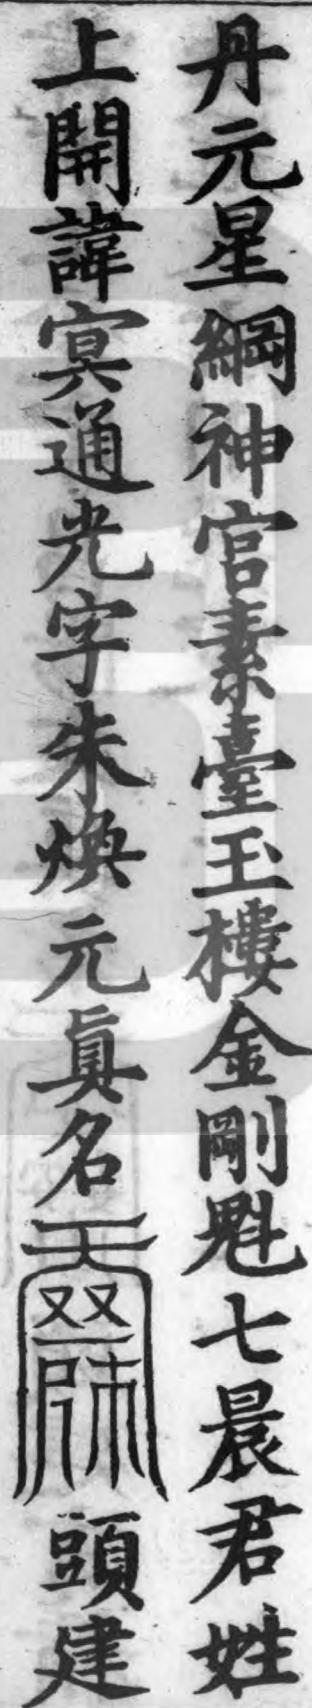 丹元星綱神官素臺玉樓金剛魁七晨君姓
上開諱㝠通光字朱煥元眞名頭建